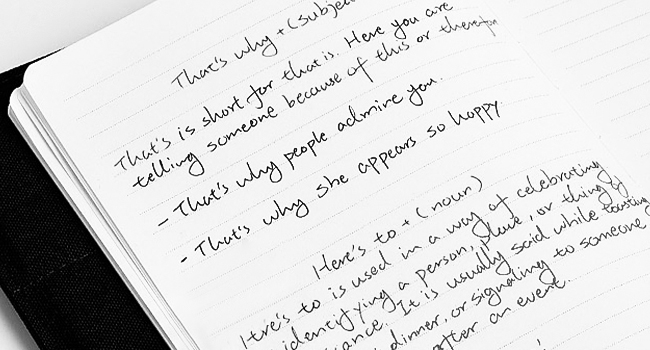 That's why + (subject
That's is short for that is. Here you are
telling someone because of this or therefor
- That's why people admire you.
- That's why she appears so happy
Here's to + (noun)
Here's to is used in a way of celebrating
identifying a person, place, or thing of
ance. It is usually said while toasting
dinner, or signaling to someone
after an event.